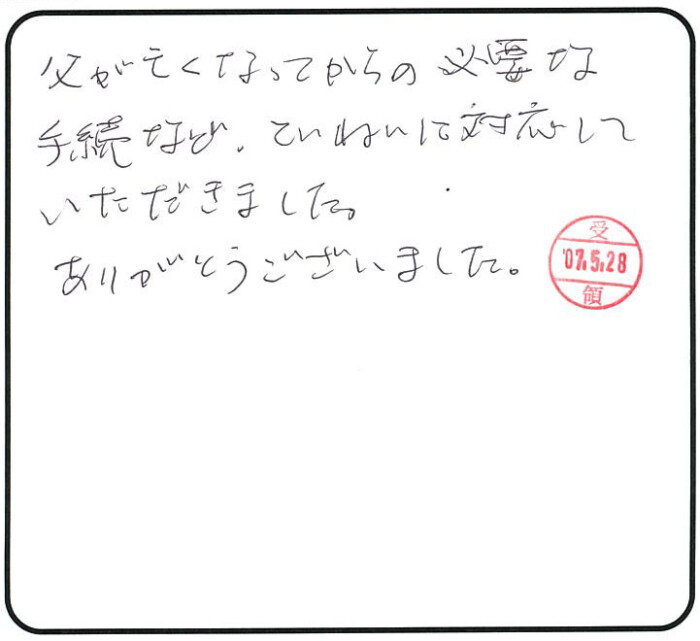 父が亡くなってからの必要な
手続など、ていねいに対応して
いただきました。
ありがとうございました。
受
'07.5.28
領